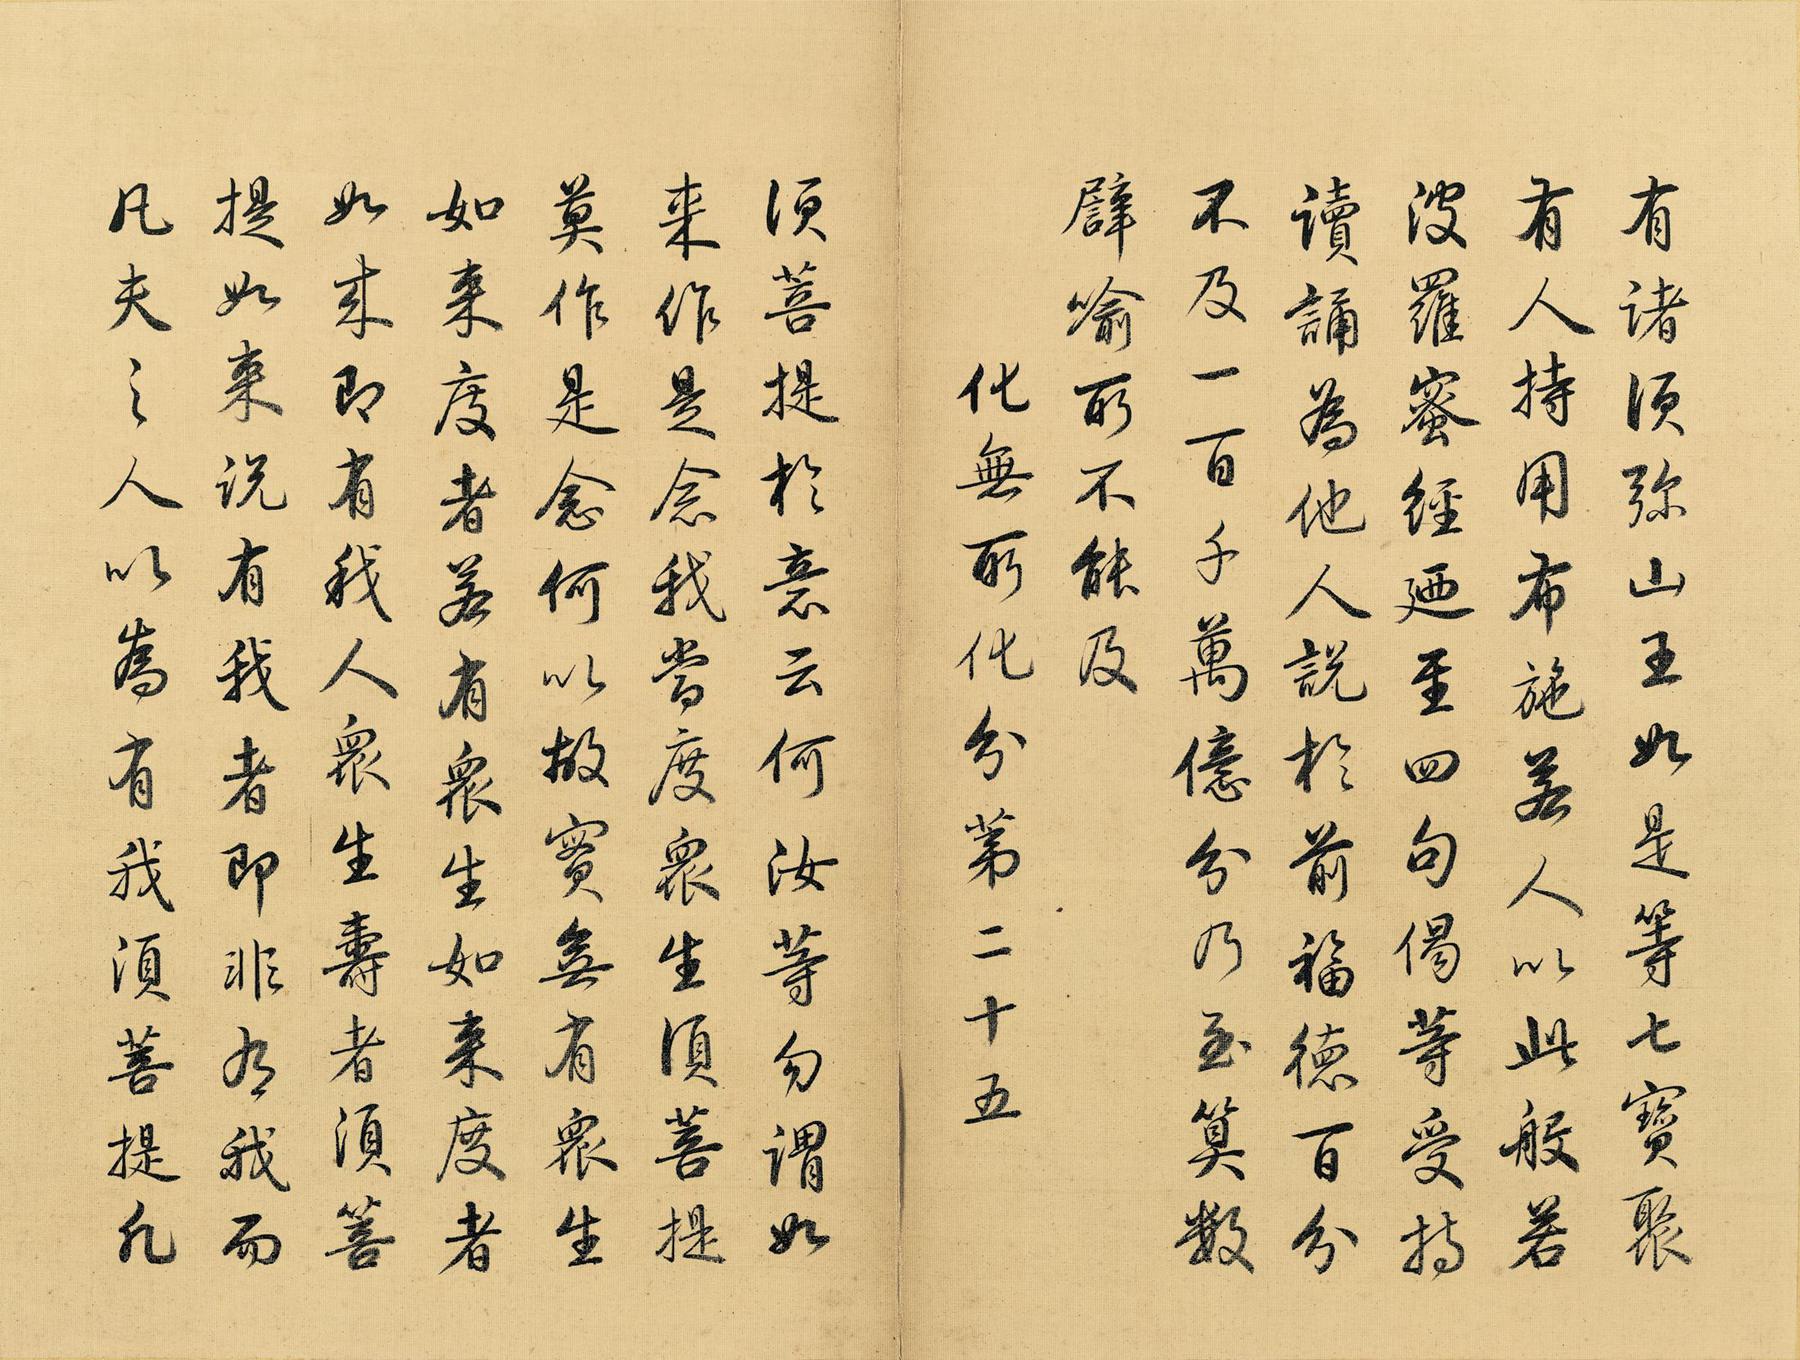 有諸須弥山王如是等七寶聚
有人持用布施若人以此般若
波羅蜜經廼至四句偈等受持
讀誦為他人説於前福德百分
不及一百千萬億分乃至算數
譬喻所不能及
化無所化分第二十五
須菩提於意云何汝等勿謂如
来作是念我當度衆生須菩提
莫作是念何以故實無有衆生
如来度者若有衆生如来度者
如来即有我人衆生壽者須菩
提如来説有我者即非有我而
凡夫之人以為有我須菩提凡